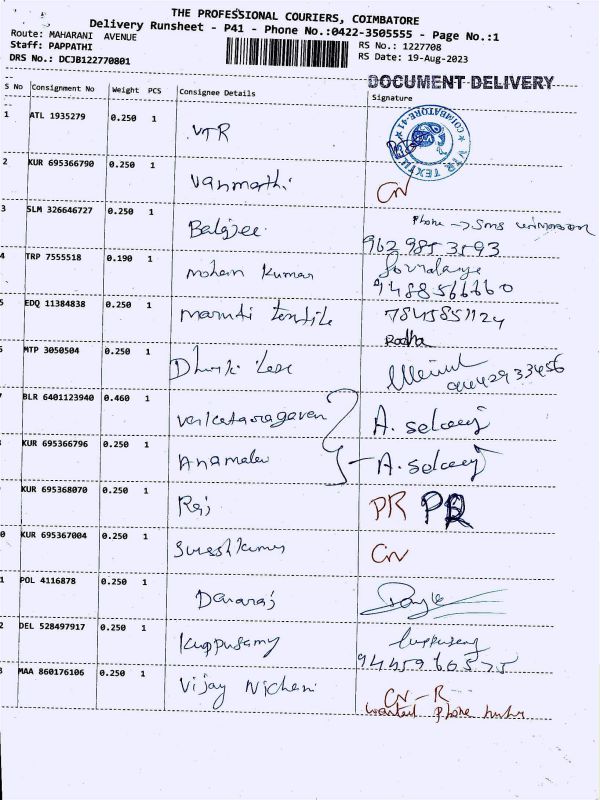 THE PROFESSIONAL COURIERS, COIMBATORE
Delivery Runsheet - P41 - Phone No.:0422-3505555 - Page No.:1
Route: MAHARANI AVENUE
Staff: PAPPATHI RS No.: 1227708
DRS No.: DCJB122770801 RS Date: 19-Aug-2023
DOCUMENT DELIVERY
S No Consignment No Weight PCS Consignee Details Signature
1 ATL 1935279 0.250 1 VTR
COIMBATORE-41 ★ VTR TEXTILE
2 KUR 695366790 0.250 1 Vanmathi CN
3 SLM 326646727 0.250 1 Balajee Phone → Sms
962 985 3593
4 TRP 7555518 0.190 1 mohan Kumar
9488566660
5 EDQ 11384838 0.250 1 maruti textile 7845851124
Radha
MTP 3050504 0.250 1
BLR 6401123940 0.460 1 Venkataragavan A. selvaraj
KUR 695366796 0.250 1 Anamalai A. selvaraj
KUR 695368070 0.250 1 Raj PR PR
0 KUR 695367004 0.250 1 Sureshkumar CN
1 POL 4116878 0.250 1 Davaraj
2 DEL 528497917 0.250 1 Kuppusamy kuppusamy
9445960575
MAA 860176106 0.250 1 Vijay Nichani CN - R
wanted phone number